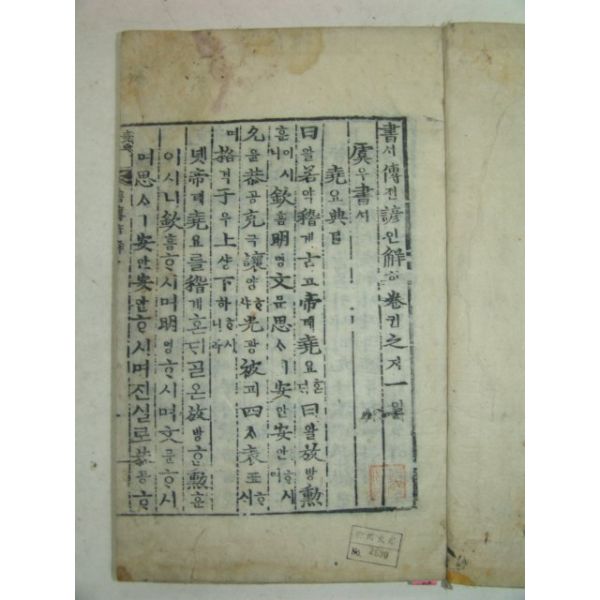 書셔傳젼諺언解ᄒᆡ卷권之지一일
虞우書셔
堯요典뎐
曰왈若약稽계古고帝뎨堯요ᄒᆞᆫᄃᆡ曰왈放방勳
훈이시니欽흠明명文문思ᄉᆞㅣ安안安안ᄒᆞ시
允윤恭공克극讓양ᄒᆞ샤光광被피四ᄉᆞ表표ᄒᆞ시
며格격于우上샹下하ᄒᆞ시니라
녯帝뎨堯요를稽계ᄒᆞᆫᄃᆡ곧온放방ᄒᆞᆫ勳훈
이시니欽흠ᄒᆞ시며明명ᄒᆞ시며文문ᄒᆞ시
며思ᄉᆞㅣ安안安안ᄒᆞ시며진실로恭공ᄒᆞ